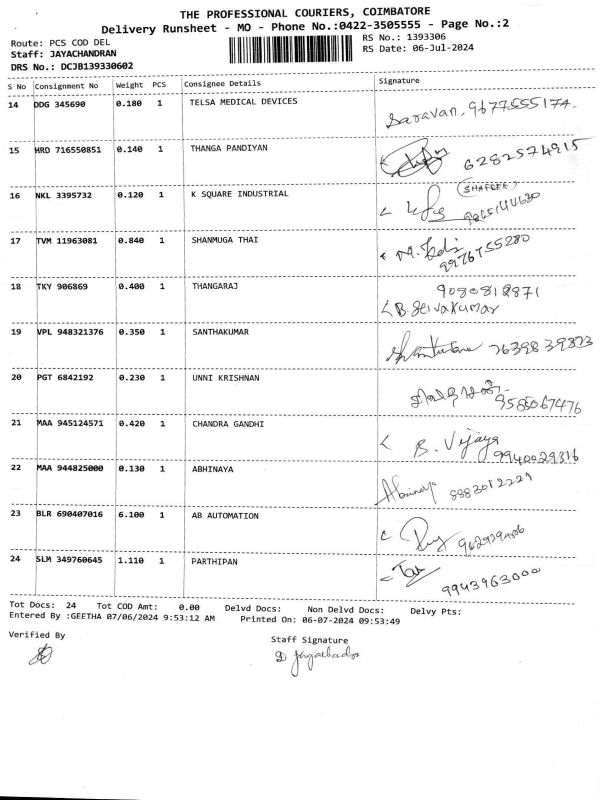 THE PROFESSIONAL COURIERS, COIMBATORE
Delivery Runsheet - MO - Phone No.:0422-3505555 - Page No.:2
Route: PCS COD DEL
RS No.: 1393306
Staff: JAYACHANDRAN
RS Date: 06-Jul-2024
DRS No.: DCJB139330602
S No Consignment No Weight PCS Consignee Details Signature
14 DDG 345690 0.180 1 TELSA MEDICAL DEVICES
Saravan, 9677555174.
15 HRD 716550851 0.140 1 THANGA PANDIYAN
6282574915
16 NKL 3395732 0.120 1 K SQUARE INDUSTRIAL
17 TVM 11963081 0.840 1 SHANMUGA THAI
9976755280
18 TKY 906869 0.400 1 THANGARAJ
B. Selvakumar
19 VPL 948321376 0.350 1 SANTHAKUMAR
20 PGT 6842192 0.230 1 UNNI KRISHNAN
9585067476
21 MAA 945124571 0.420 1 CHANDRA GANDHI
B. Vijaya
9940029316
22 MAA 944825000 0.130 1 ABHINAYA
Abinaya 8883012221
23 BLR 690407016 6.100 1 AB AUTOMATION
24 SLM 349760645 1.110 1 PARTHIPAN
9943963000
Tot Docs: 24 Tot COD Amt: 0.00 Delvd Docs: Non Delvd Docs: Delvy Pts:
Entered By :GEETHA 07/06/2024 9:53:12 AM Printed On: 06-07-2024 09:53:49
Verified By
Staff Signature